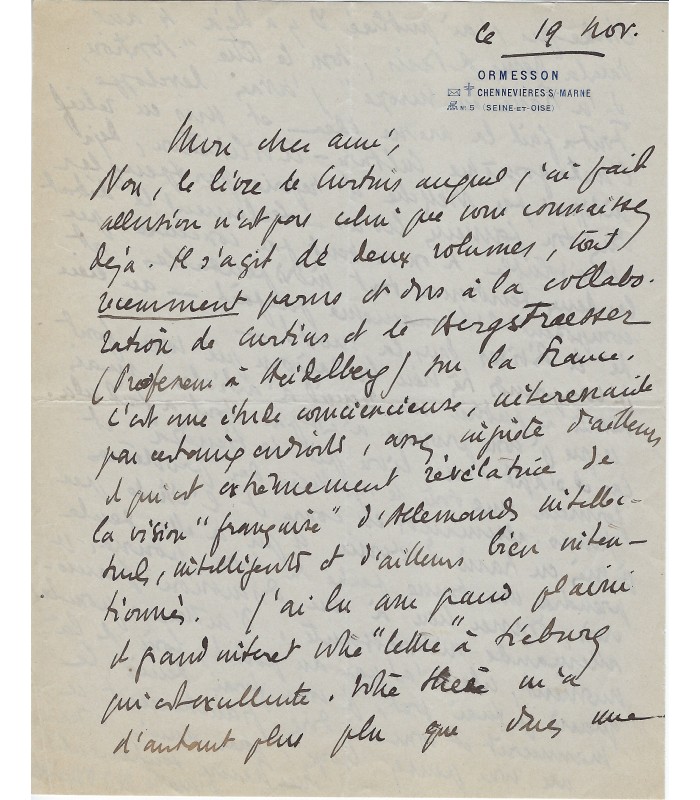 ce 19 nov.
ORMESSON
CHENNEVIÈRES S/ MARNE
N° 5 (SEINE-ET-OISE)
Mon cher ami,
Non, le livre de Curtius auquel j'ai fait
allusion n'est pas celui que vous connaissez
déjà. Il s'agit de deux volumes, tout
récemment parus et dus à la collabo-
ration de Curtius et de Bergstraesser
(Professeur à Heidelberg) sur la France.
C'est une étude consciencieuse, intéressante
par certains endroits, assez injuste d'ailleurs
et qui est extrêmement révélatrice de
la vision "française" d'Allemands intellec-
tuels, intelligents et d'ailleurs bien inten-
tionnés. J'ai lu avec grand plaisir
et grand intérêt votre "lettre" à Sieburg
qui est excellente. Votre thèse m'a
d'autant plus plu que dans une